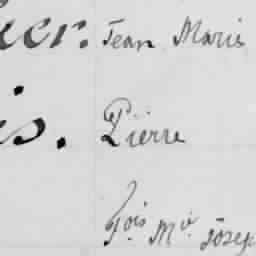 er. Jean Marie
is. Pierre
fois Mie Josep